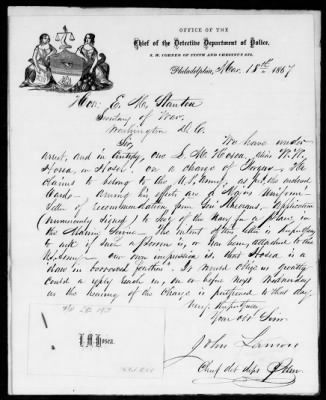 OFFICE OF THE
Chief of the Detective Department of Police,
S. W. CORNER OF FIFTH AND CHESTNUT STS.
Philadelphia, Mar. 18th 1867
Hon. E. M. Stanton
Secretary of War.
Washington D. C.
Sir,
We have under
arrest, and in custody, one L. M. Hosea, alias
Hosea, or Hoser on a charge of He
Claims to belong to the U.S. Army, as per the enclosed
Cards. among his effects are a Majors Uniform
letter of recommendation from Gen Sherman. application
(numerously signed) to Secy of the Navy for a place in
the Service. The intent of this letter is
to ask if such a person is, or has been, attached to the
U.S. Army. our own impression is that Hosea is a
daw in borrowed feathers. It would oblige us greatly
Could a reply reach us, on or before next Wednesday
as the hearing of the charge is postponed to that day.
Very Respectfully
Your Obt Serv
John Lamon
Chief det dept Phila
L. M. Hosea.